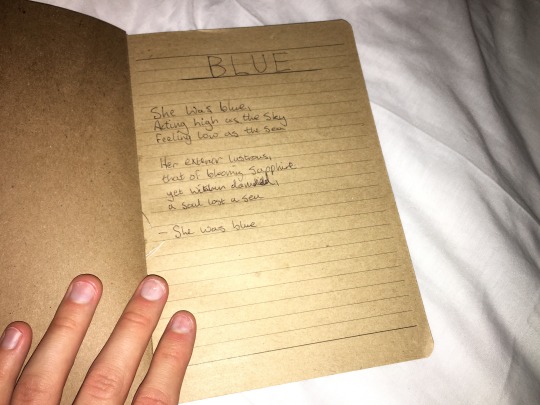 BLUE
She was blue,
Acting high as the sky
Feeling low as the sea
Her exterior lustrous,
that of blooming sapphire
yet within
a soul lost a sea
- She was blue